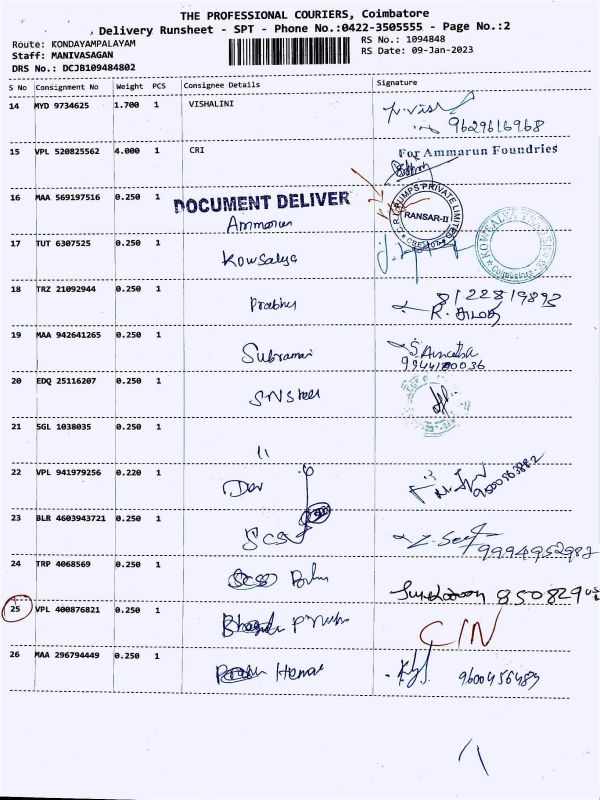 THE PROFESSIONAL COURIERS, Coimbatore
Delivery Runsheet - SPT - Phone No.:0422-3505555 - Page No.:2
Route: KONDAYAMPALAYAM
RS No.: 1094848
Staff: MANIVASAGAN
RS Date: 09-Jan-2023
DRS No.: DCJB109484802
S No Consignment No Weight PCS Consignee Details Signature
14 MYD 9734625 1.700 1 VISHALINI
9629616968
15 VPL 520825562 4.000 1 CRI For Ammarun Foundries
16 MAA 569197516 0.250 1 DOCUMENT DELIVER
C.R.I. PUMPS PRIVATE LIMITED
RANSAR-II
Ammarun
17 TUT 6307525 0.250 1 Kowsalya
18 TRZ 21092944 0.250 1 Prabhu 8122819893
19 MAA 942641265 0.250 1 Subramani
9944180036
20 EDQ 25116207 0.250 1 SNSteel
21 SGL 1038035 0.250 1 11
22 VPL 941979256 0.220 1 Dev
23 BLR 4603943721 0.250 1 SCS
9994952982
24 TRP 4068569 0.250 1
850829
25 VPL 400876821 0.250 1 C/N
26 MAA 296794449 0.250 1 9600456489